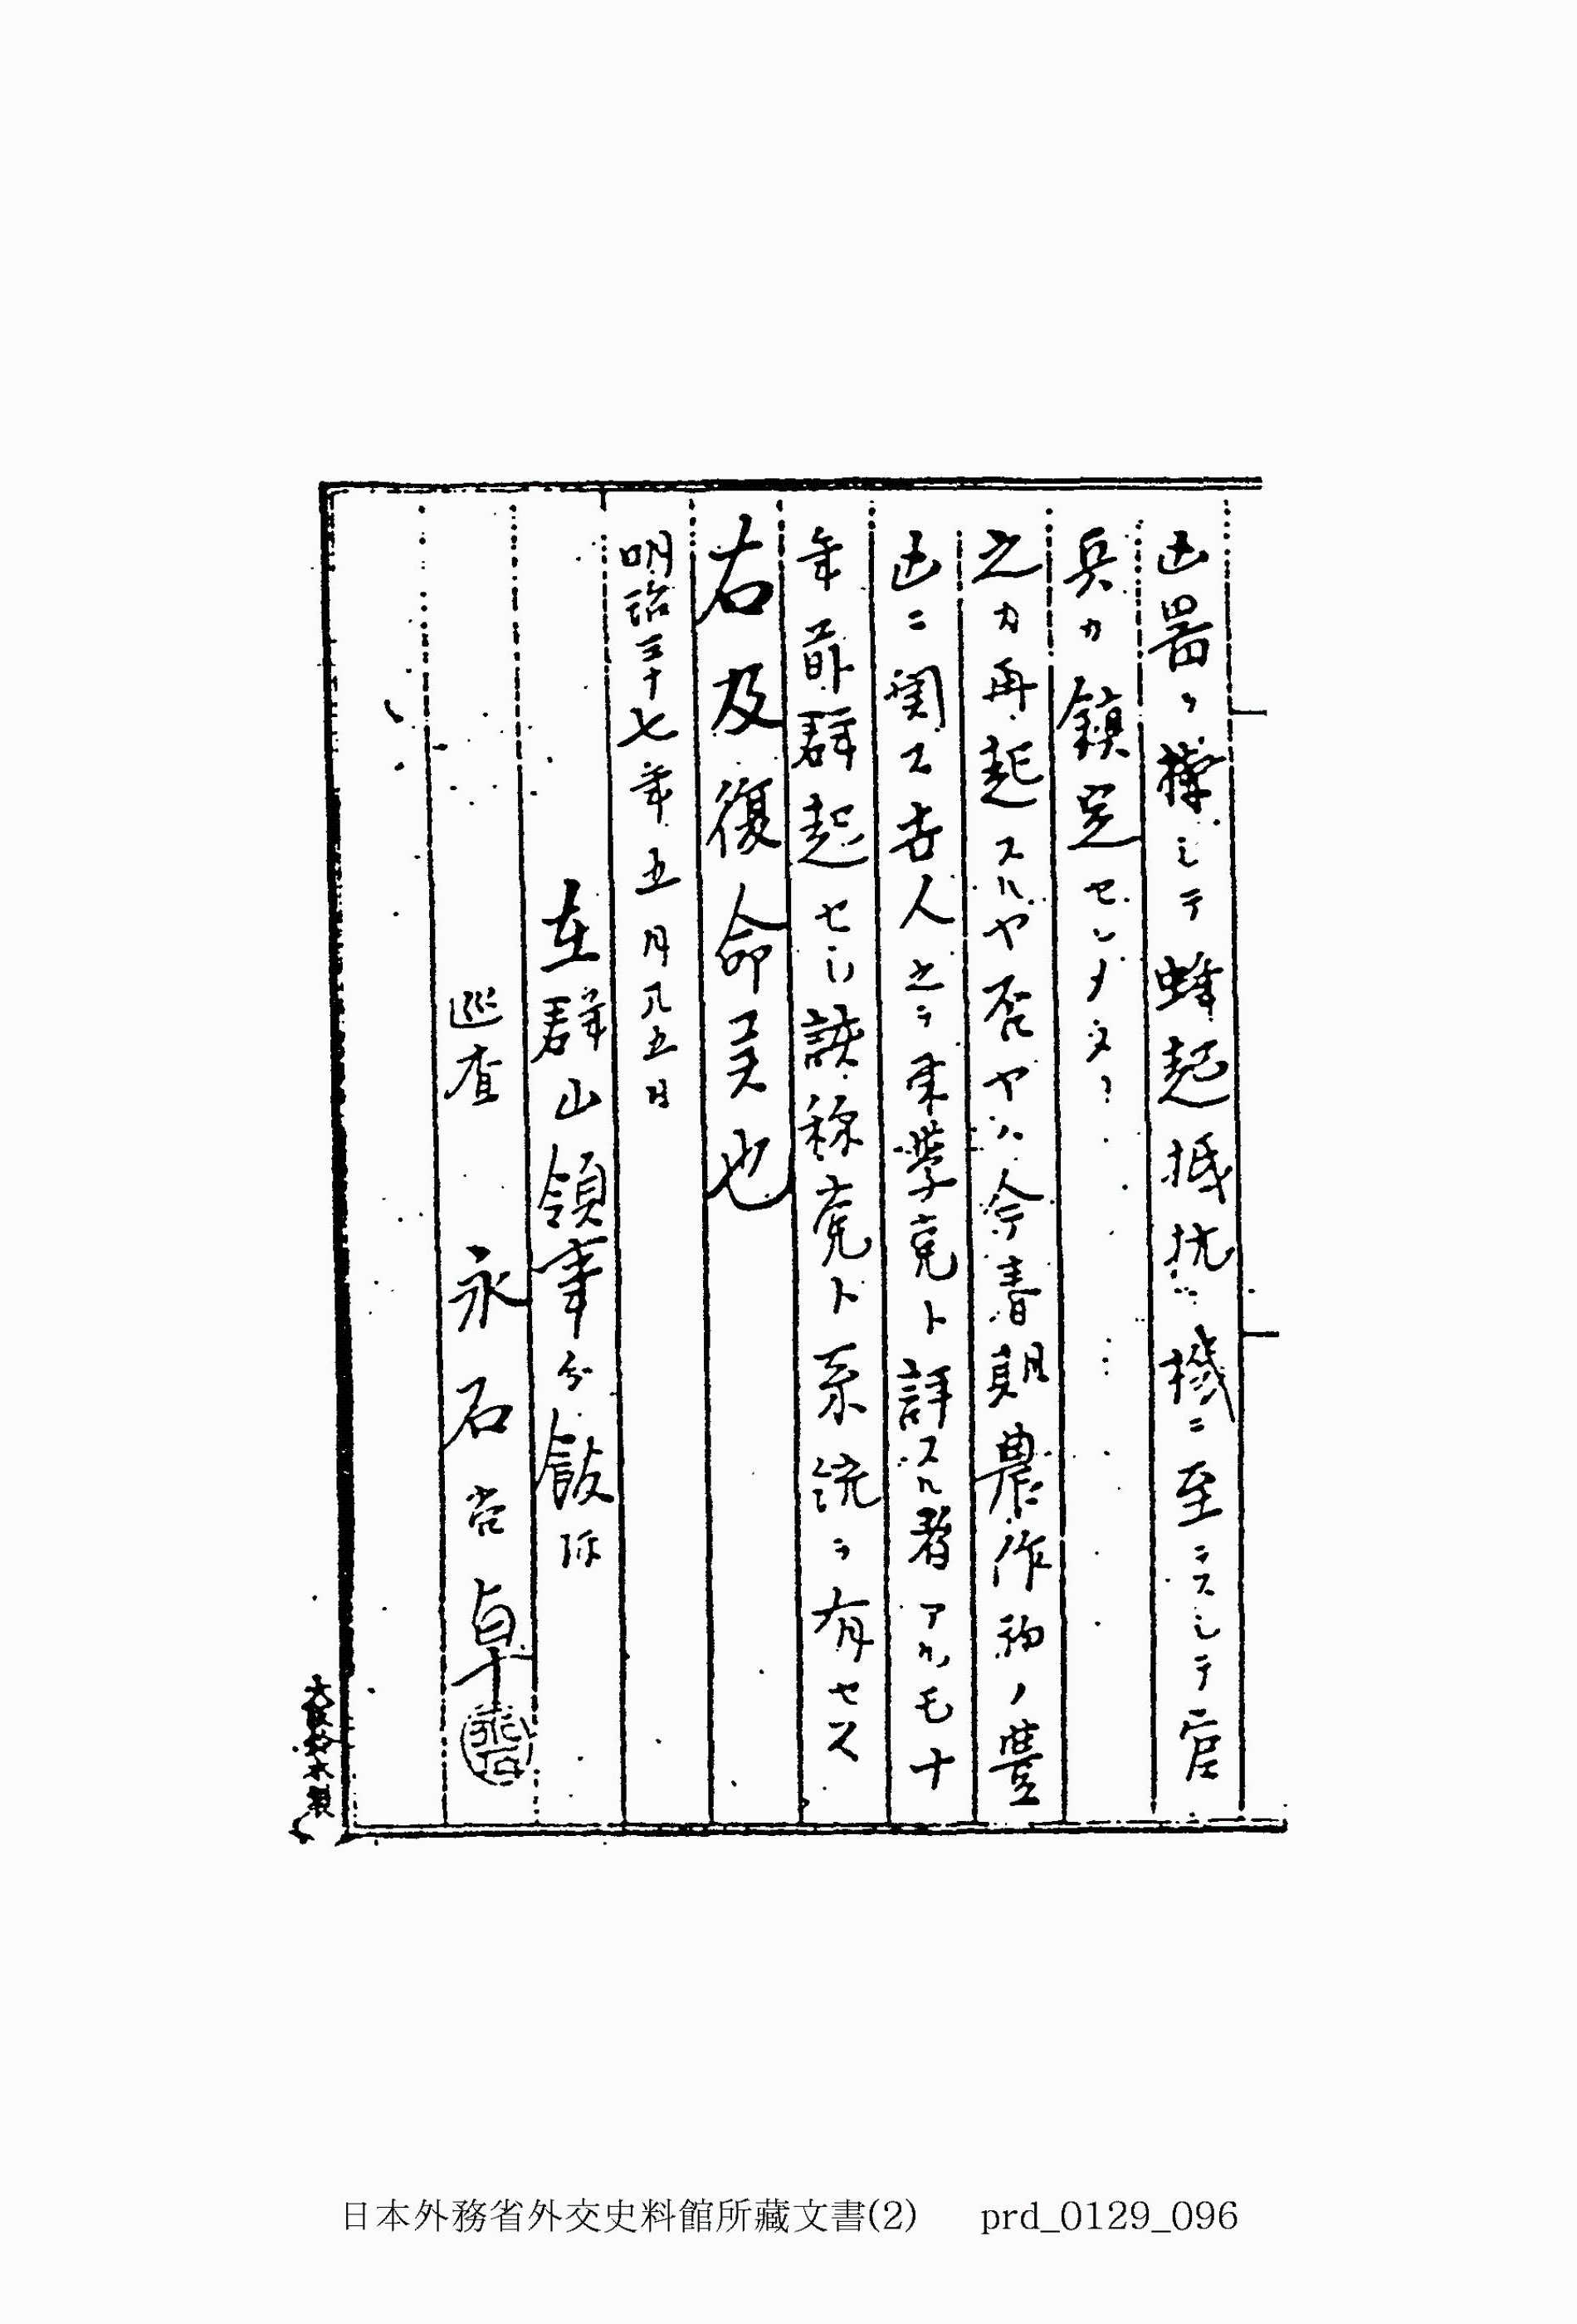 凶器ヲ擁シテ蜂起抵抗ノ機ニ至ラスシテ官
兵カ鎮定セシメタリ
之カ再起スルヤ否ヤハ今春期農作物ノ豊
凶ニ関ス吉人之ヲ東学党ト評スル者アルモ十
年前群起セシ該称党ト系統ヲ有セス
右及復命候也
明治三十七年五月廿五日
在群山領事分館詰
巡査 永石 卓
永石
日本外務省外交史料館所藏文書(2) prd_0129_096